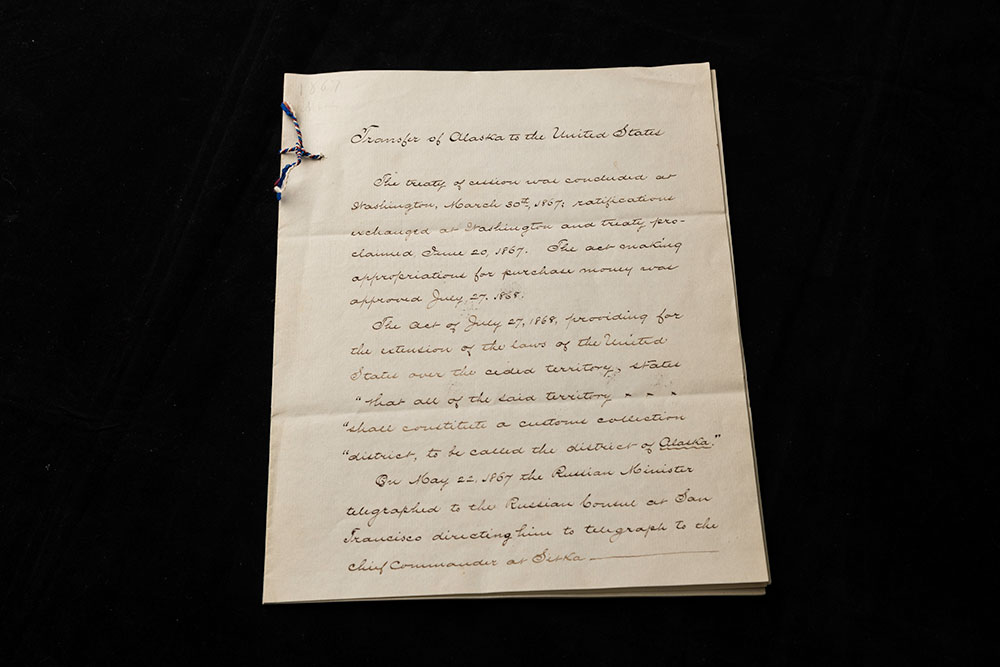 1867
Transfer of Alaska to the United States
The treaty of cession was concluded at
Washington, March 30th, 1867; ratifications
exchanged at Washington and treaty pro-
claimed June 20, 1867. The act making
appropriations for purchase money was
approved July, 27, 1868.
The act of July 27, 1868, providing for
the extension of the laws of the United
States over the ceded territory, states
"that all of the said territory - - -
"shall constitute a customs collection
"district, to be called the district of Alaska."
On May 22, 1867 the Russian Minister
telegraphed to the Russian Consul at San
Francisco directing him to telegraph to the
chief Commander at Sitka